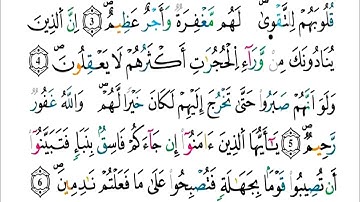 قُلُوبُهُمْ لِلتَّقْوَىٰ ۚ لَهُم مَّغْفِرَةٌ وَأَجْرٌ عَظِيمٌ ﴿3﴾ إِنَّ الَّذِينَ
يُنَادُونَكَ مِن وَرَآءِ الْحُجُرَٰتِ أَكْثَرُهُمْ لَا يَعْقِلُونَ ﴿4﴾
وَلَوْ أَنَّهُمْ صَبَرُوا۟ حَتَّىٰ تَخْرُجَ إِلَيْهِمْ لَكَانَ خَيْرًا لَّهُمْ ۚ وَاللَّهُ غَفُورٌ
رَّحِيمٌ ﴿5﴾ يَٰٓأَيُّهَا الَّذِينَ ءَامَنُوٓا۟ إِن جَآءَكُمْ فَاسِقٌۢ بِنَبَإٍ فَتَبَيَّنُوٓا۟
أَن تُصِيبُوا۟ قَوْمًۢا بِجَهَٰلَةٍ فَتُصْبِحُوا۟ عَلَىٰ مَا فَعَلْتُمْ نَٰدِمِينَ ﴿6﴾